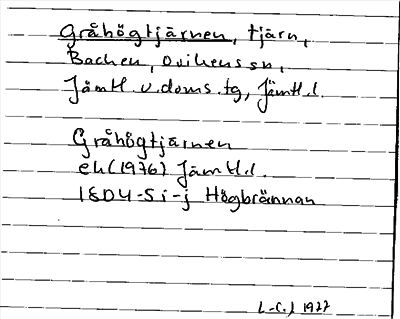 Gråhögtjärnen, tjärn,
Backen, Ovikens sn,
Jämtl. v. doms. tg, Jämtl. l.
Gråhögtjärnen
ek (1976) Jämtl. l.
18D4-5 i-j Högbrännan
L-C.J 1977